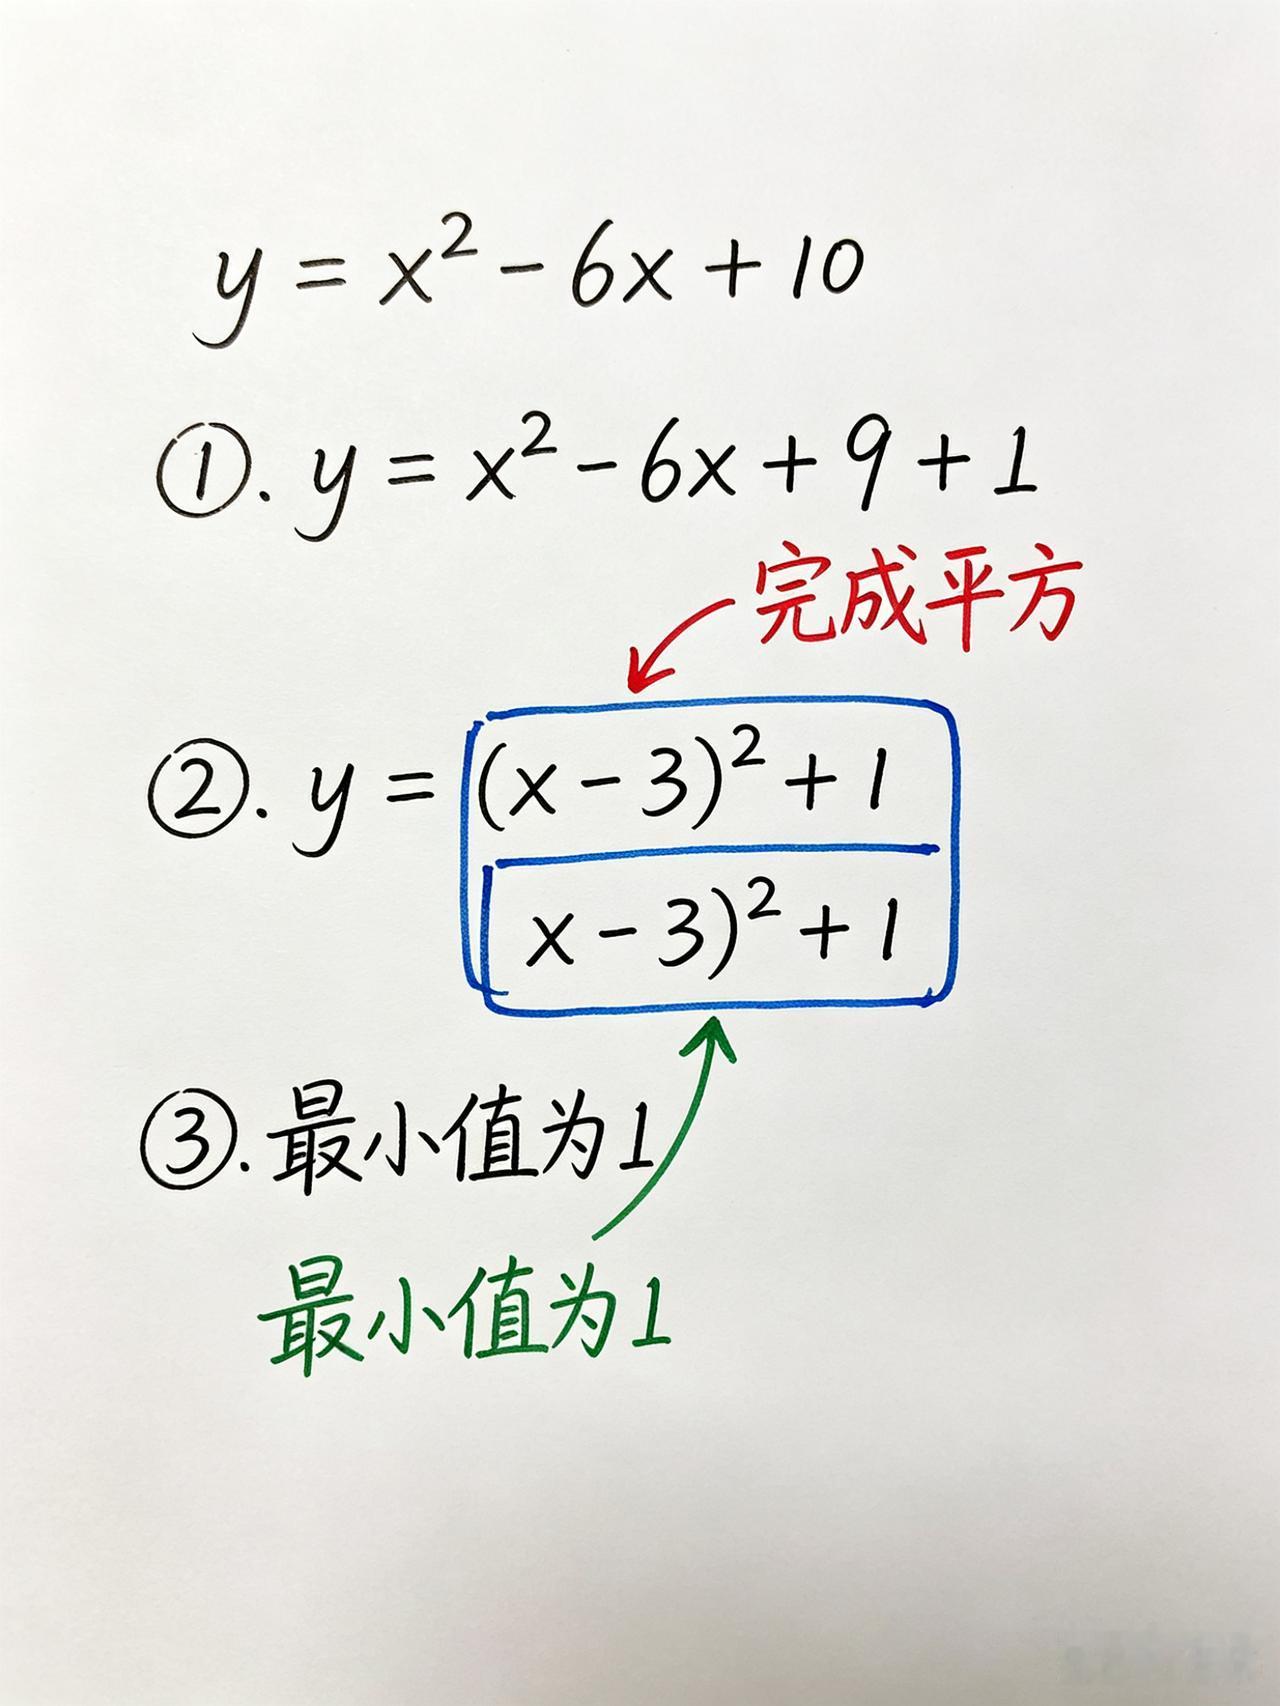 y = x² - 6x + 10
①. y = x² - 6x + 9 + 1
完成平方
②. y = (x - 3)² + 1
x - 3)² + 1
③. 最小值为1
最小值为1